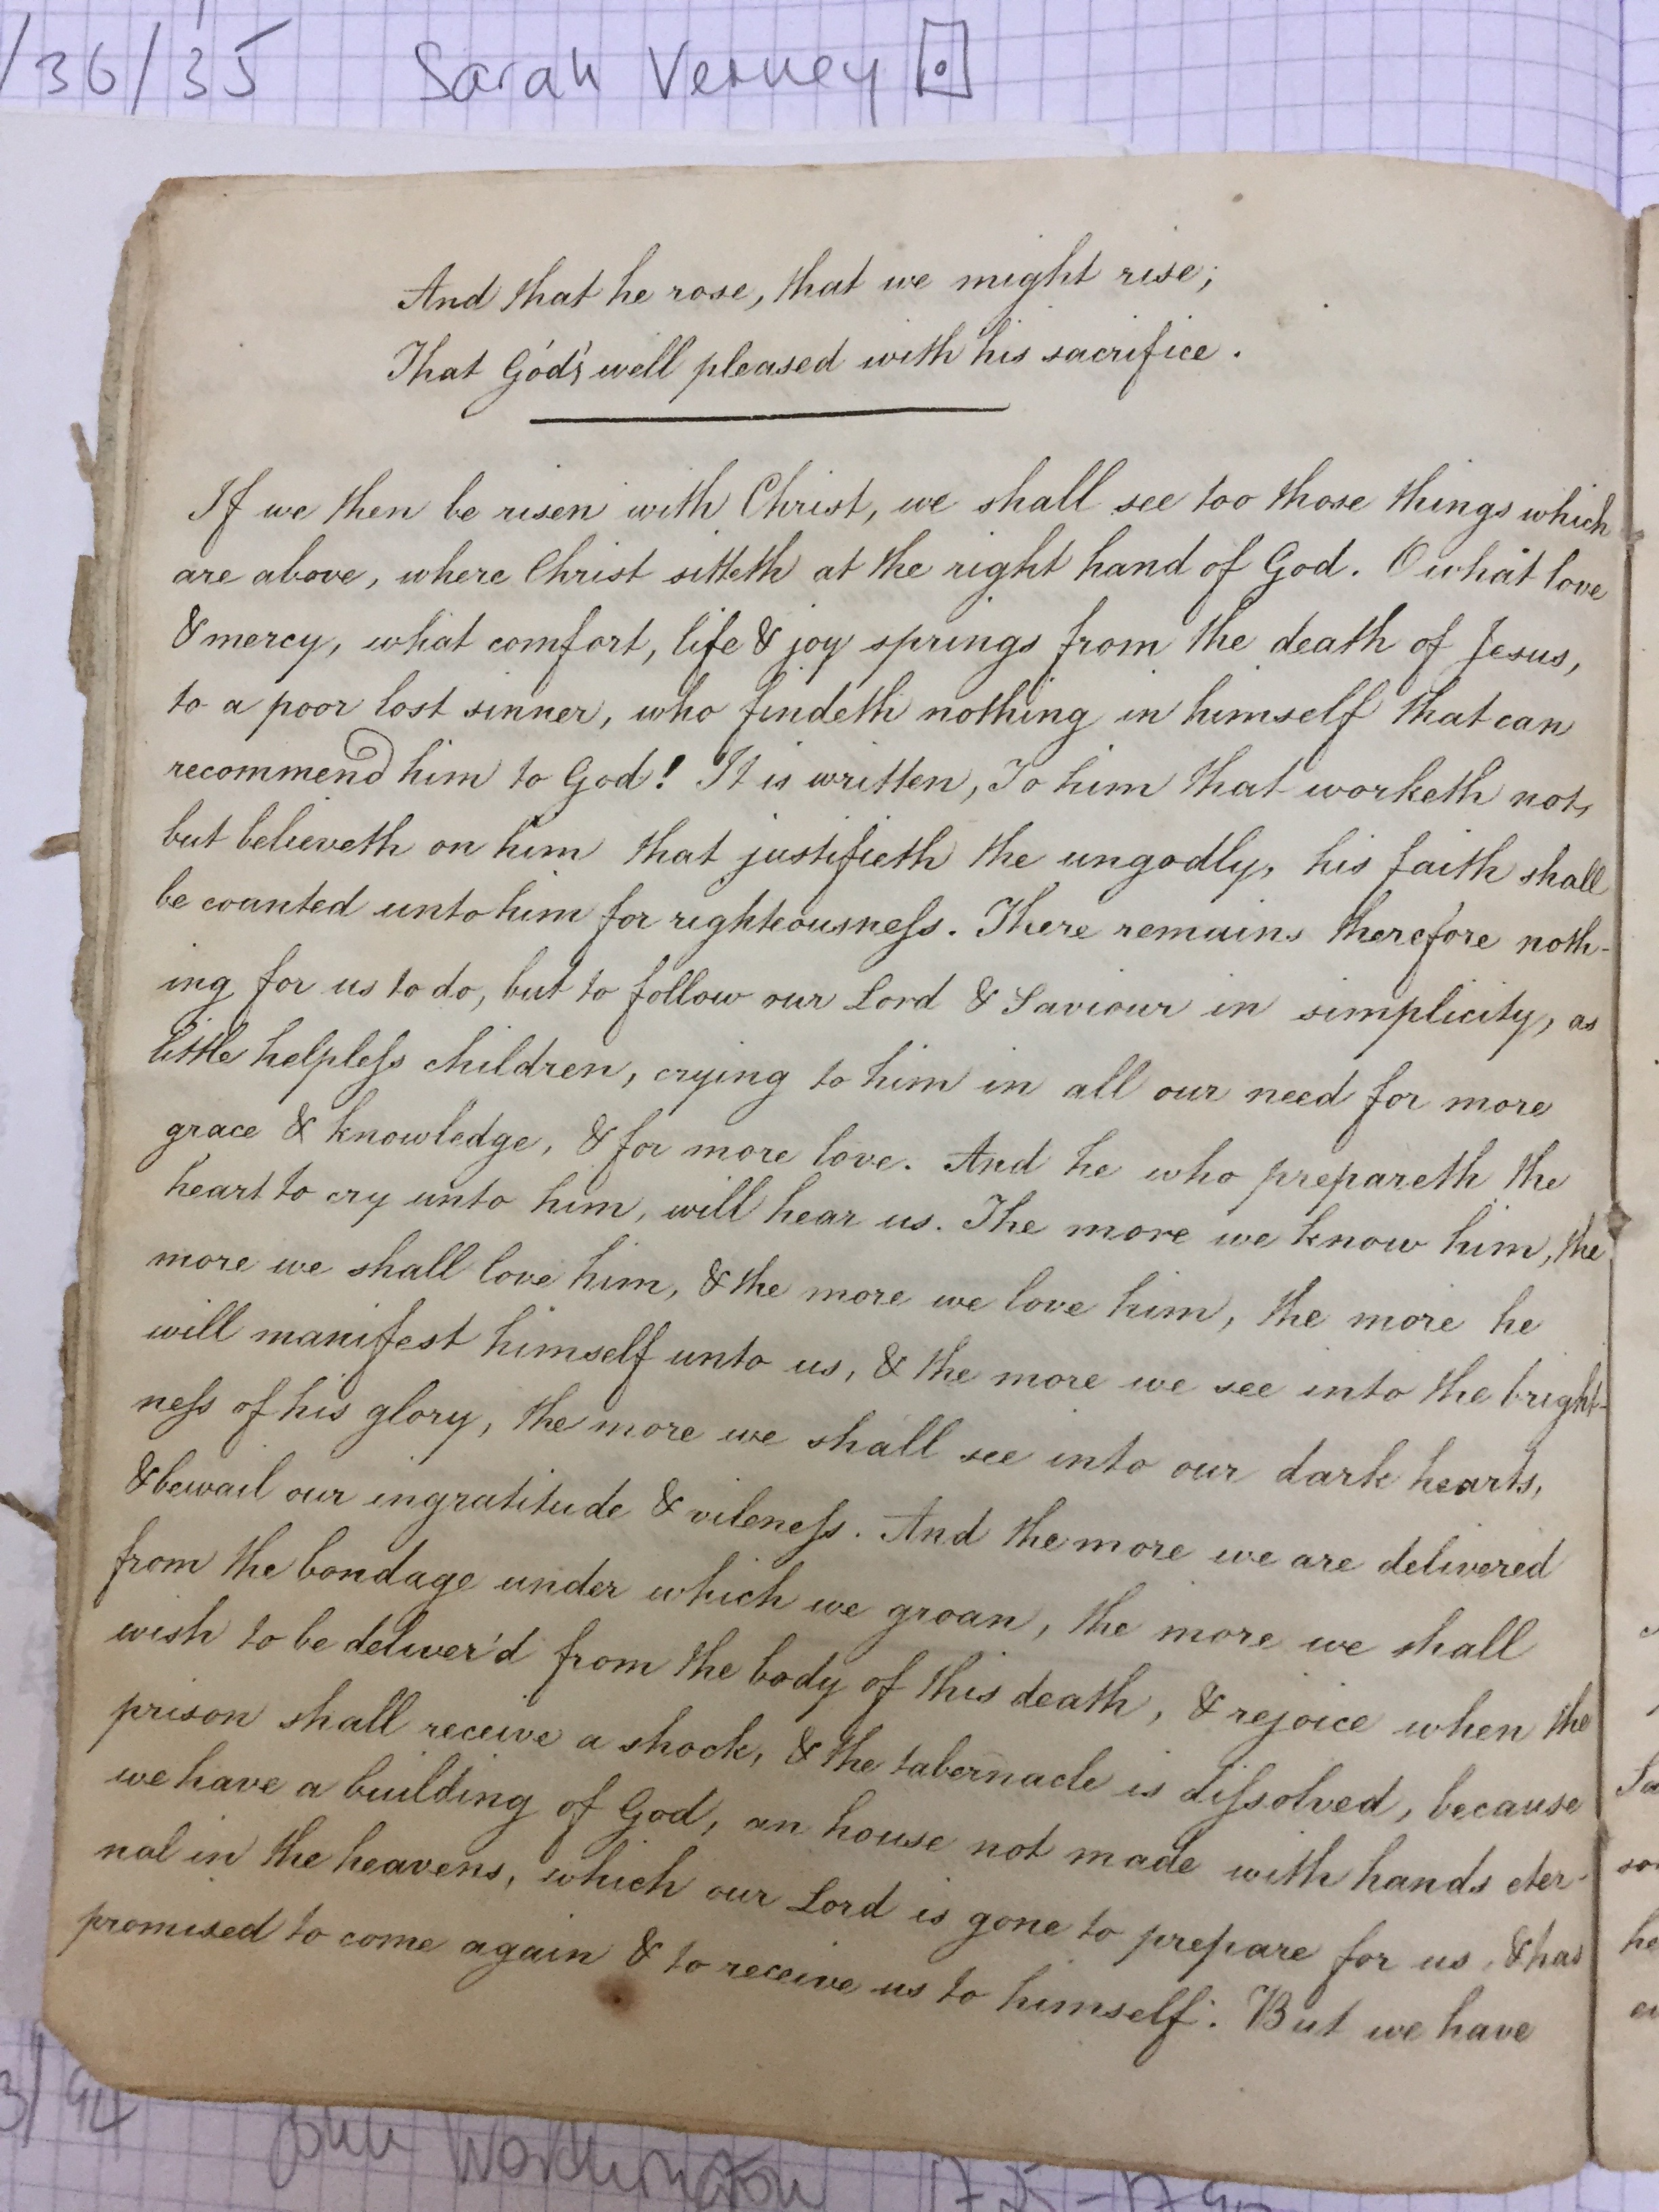 /36/35 Sarah Verney
And that he rose, that we might rise;
That God's well pleased with his sacrifice.
If we then be risen with Christ, we shall see too those things which
are above, where Christ sitteth at the right hand of God. O what love
& mercy, what comfort, life & joy springs from the death of Jesus,
to a poor lost sinner, who findeth nothing in himself that can
recommend him to God! It is written, To him that worketh not,
but believeth on him that justifieth the ungodly, his faith shall
be counted unto him for righteousneſs. There remains therefore noth-
ing for us to do, but to follow our Lord & Saviour in simplicity, as
little helpleſs children, crying to him in all our need for more
grace & knowledge, & for more love. And he who prepareth the
heart to cry unto him, will hear us. The more we know him, the
more we shall love him, & the more we love him, the more he
will manifest himself unto us, & the more we see into the bright-
neſs of his glory, the more we shall see into our dark hearts,
& bewail our ingratitude & vileneſs. And the more we are delivered
from the bondage under which we groan, the more we shall
wish to be deliver'd from the body of this death, & rejoice when the
prison shall receive a shock, & the tabernacle is diſsolved, because
we have a building of God, an house not made with hands eter-
nal in the heavens, which our Lord is gone to prepare for us, & has
promised to come again & to receive us to himself. But we have
3/94 John Worthington